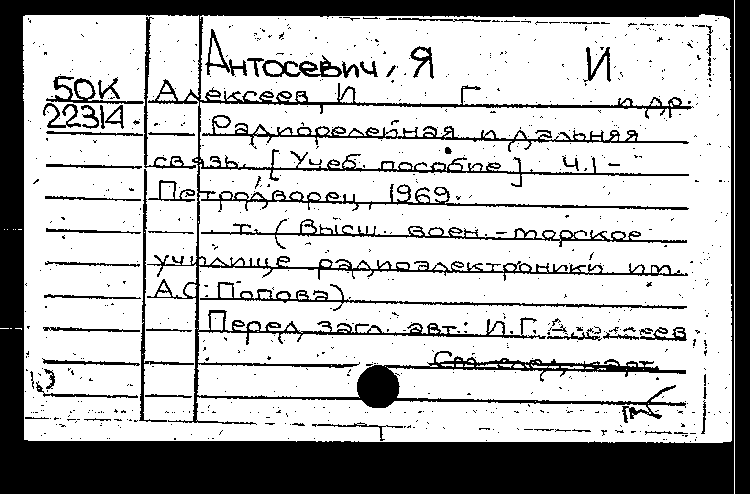 Антосевич, Я И
50К Алексеев, И Г и др.
22314 Радиорелейная и дальняя
связь. [Учеб. пособие]. Ч.1 -
Петродворец, 1969.
т. (Высш. воен.-морское
училище радиоэлектроники им.
А.С. Попова)
Перед загл. авт.: И.Г. Алексеев,
См. след. карт.